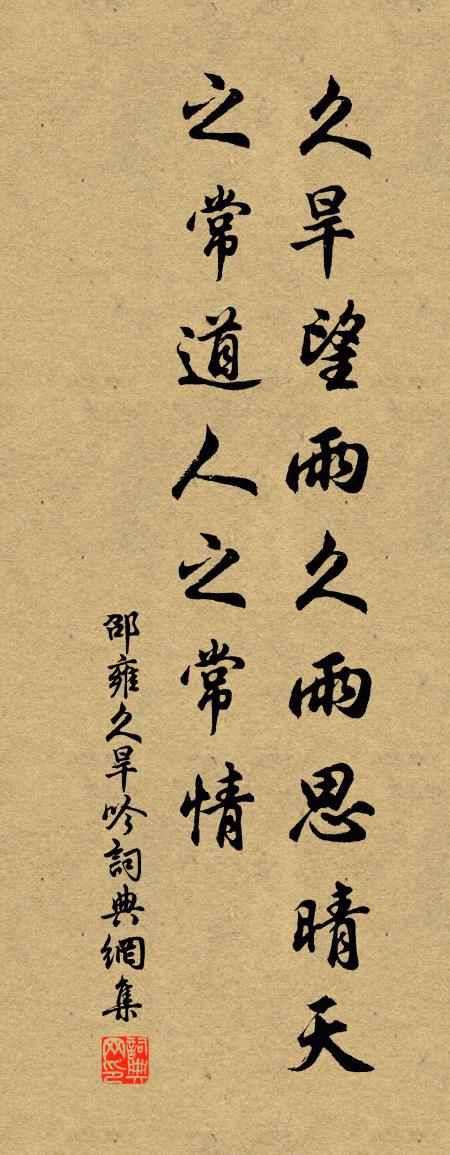 久旱望雨久雨思晴天
之常道人之常情
邵雍久旱吟詞典網集
詞典网印